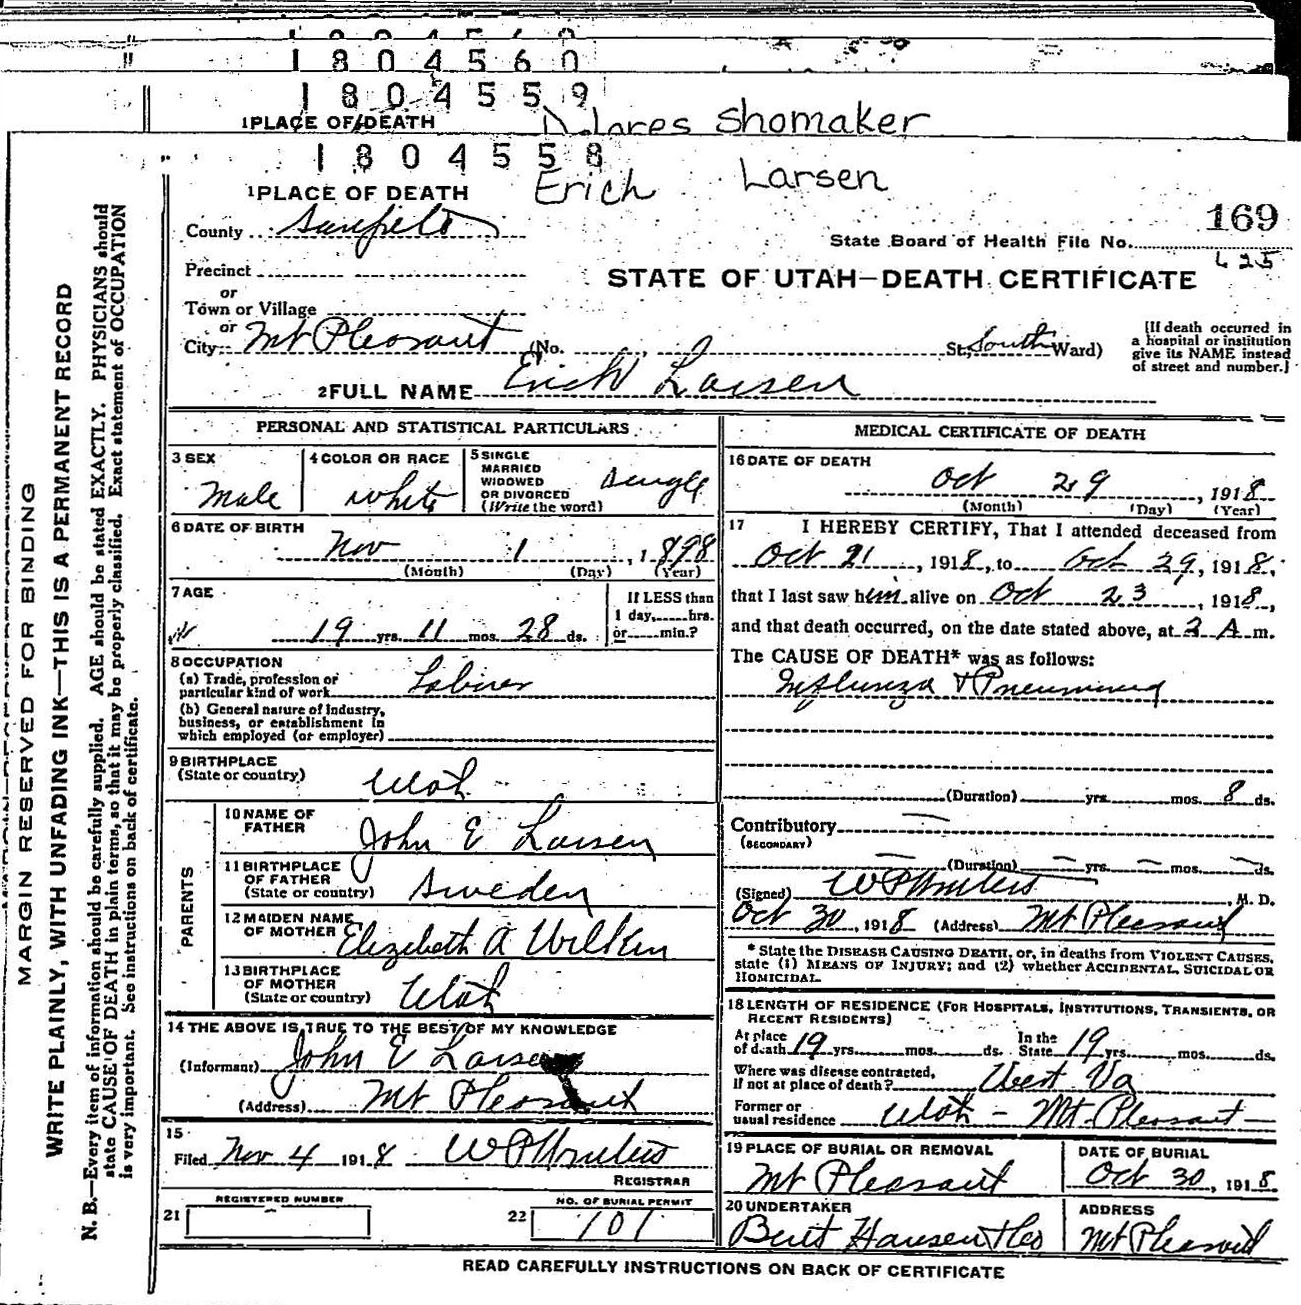 1 8 0 4 5 6 0
1 8 0 4 5 5 9
1 PLACE OF DEATH Shomaker
1 8 0 4 5 5 8
1 PLACE OF DEATH Erich Larsen
County Sanpete
169
State Board of Health File No.
625
Precinct
STATE OF UTAH—DEATH CERTIFICATE
or
Town or Village
or
City Mt Pleasant (No. St; South Ward)
[If death occurred in a hospital or institution give its NAME instead of street and number.]
2 FULL NAME Erich Larsen
PERSONAL AND STATISTICAL PARTICULARS
3 SEX Male
4 COLOR OR RACE White
5 SINGLE MARRIED WIDOWED OR DIVORCED (Write the word) Single
6 DATE OF BIRTH
Nov 1, 1898
(Month) (Day) (Year)
7 AGE
19 yrs. 11 mos. 28 ds.
If LESS than 1 day, hrs. or min.?
8 OCCUPATION
(a) Trade, profession or particular kind of work Laborer
(b) General nature of industry, business, or establishment in which employed (or employer)
9 BIRTHPLACE
(State or country)
Utah
PARENTS
10 NAME OF FATHER John E Larsen
11 BIRTHPLACE OF FATHER (State or country) Sweden
12 MAIDEN NAME OF MOTHER Elizabeth A Wilken
13 BIRTHPLACE OF MOTHER (State or country) Utah
14 THE ABOVE IS TRUE TO THE BEST OF MY KNOWLEDGE
(Informant) John E Larsen
(Address) Mt Pleasant
15
Filed Nov 4 1918
REGISTRAR
21 REGISTERED NUMBER
22 NO. OF BURIAL PERMIT 101
MEDICAL CERTIFICATE OF DEATH
16 DATE OF DEATH
Oct 29, 1918
(Month) (Day) (Year)
17 I HEREBY CERTIFY, That I attended deceased from
Oct 21, 1918, to Oct 29, 1918,
that I last saw him alive on Oct 23, 1918,
and that death occurred, on the date stated above, at 2 A m.
The CAUSE OF DEATH* was as follows:
Influenza & Pneumonia
(Duration) yrs. mos. 8 ds.
Contributory
(SECONDARY)
(Duration) yrs. mos. ds.
(Signed) , M. D.
Oct 30, 1918 (Address) Mt Pleasant
* State the DISEASE CAUSING DEATH, or, in deaths from VIOLENT CAUSES, state (1) MEANS OF INJURY; and (2) whether ACCIDENTAL, SUICIDAL OR HOMICIDAL.
18 LENGTH OF RESIDENCE (FOR HOSPITALS, INSTITUTIONS, TRANSIENTS, OR RECENT RESIDENTS)
At place of death 19 yrs. mos. ds. In the State 19 yrs. mos. ds.
Where was disease contracted, if not at place of death? West Va
Former or usual residence Utah - Mt. Pleasant -
19 PLACE OF BURIAL OR REMOVAL
Mt Pleasant
DATE OF BURIAL
Oct 30, 1918
20 UNDERTAKER
Hansen
ADDRESS
Mt Pleasant
READ CAREFULLY INSTRUCTIONS ON BACK OF CERTIFICATE
MARGIN RESERVED FOR BINDING
WRITE PLAINLY, WITH UNFADING INK—THIS IS A PERMANENT RECORD
N. B.—Every item of information should be carefully supplied. AGE should be stated EXACTLY. PHYSICIANS should
state CAUSE OF DEATH in plain terms, so that it may be properly classified. Exact statement of OCCUPATION
is very important. See instructions on back of certificate.